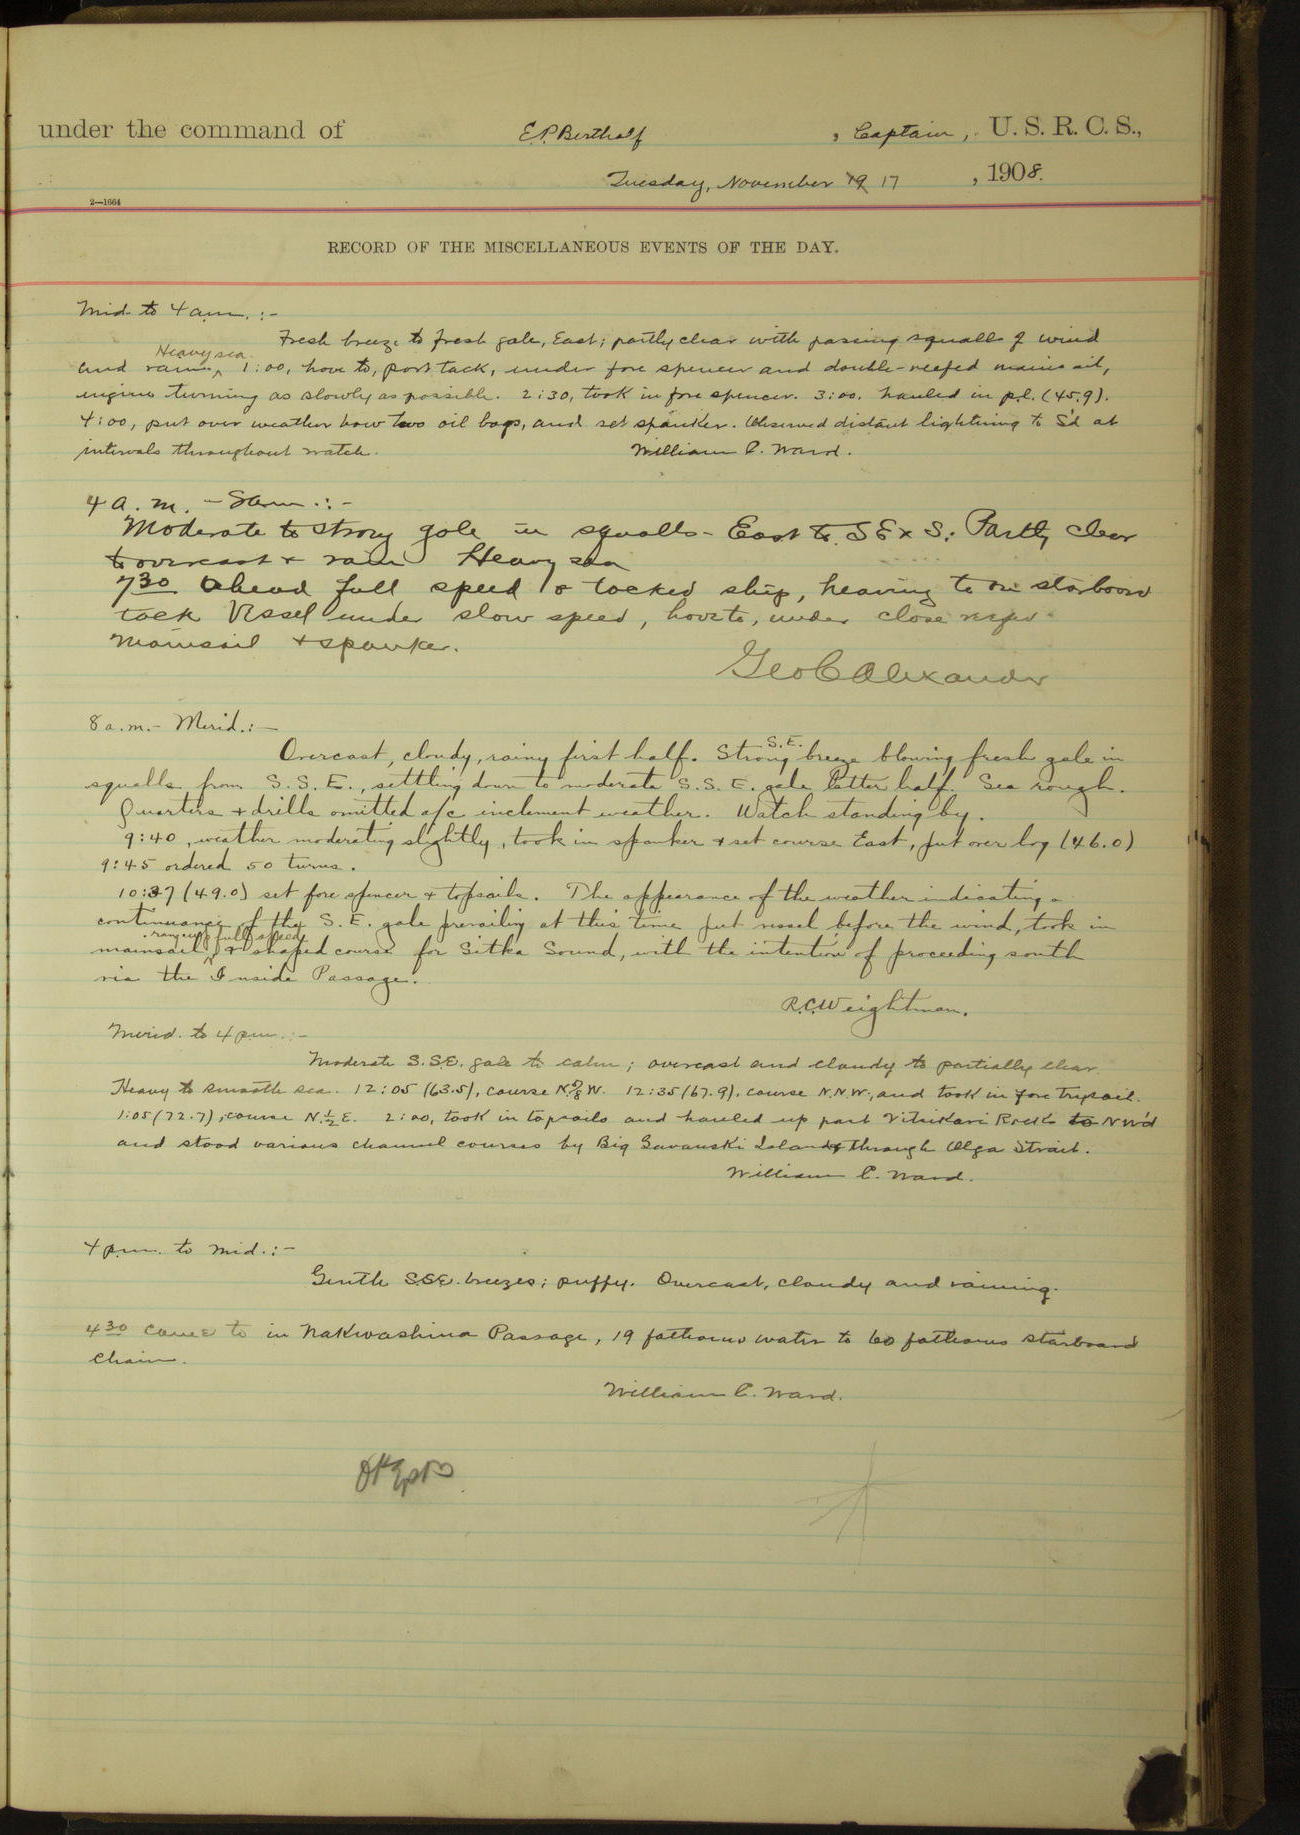 under the command of E.P. Bertholf, Captain, U. S. R. C. S.,
Tuesday, November 19 17, 1908.
2—1664
RECORD OF THE MISCELLANEOUS EVENTS OF THE DAY.
Mid to 4 a.m. :-
Fresh breeze to fresh gale, East; partly clear with passing squalls of wind
Heavy sea.
and rain. 1:00, hove to, port tack, under fore spencer and double-reefed mainsail,
engine turning as slowly as possible. 2:30, took in fore spencer. 3:00, hauled in p.l. (45.9).
4:00, put over weather bow two oil bags, and set spanker. Observed distant lightning to S'd at
intervals throughout watch. William C. Ward.
4 a. m. - 8 am :-
Moderate to strong gale in squalls - East to SE x S; Partly clear
to overcast & rain Heavy sea
7 30 Ahead full speed & tacked ship, heaving to on starboard
tack Vessel under slow speed, hove to, under close reefed
mainsail & spanker.
Geo C Alexander
8 a.m. - Merid. :-
Overcast, cloudy, rainy first half. Strong S.E. breeze blowing fresh gale in
squalls from S. S. E., settling down to moderate S. S. E. gale latter half. Sea rough.
Quarters & drills omitted a/c inclement weather. Watch standing by.
9:40, weather moderating slightly, took in spanker & set course East, put over log (46.0)
9:45 ordered 50 turns.
10:37 (49.0) set fore spencer & topsails. The appearance of the weather indicating a
continuance of the S. E. gale prevailing at this time put vessel before the wind, took in
rang up full speed
mainsail, & shaped course for Sitka Sound, with the intention of proceeding south
via the Inside Passage.
R.C. Weightman.
Merid. to 4 p.m. :-
Moderate S.S.E. gale to calm; overcast and cloudy to partially clear.
Heavy to smooth sea. 12:05 (63.5), course N. W. 12:35 (67.9), course N.N.W., and took in fore trysail.
1:05 (72.7), course N. ½ E. 2:00, took in topsails and hauled up past Vitskari Rock to NW'd
and stood various channel courses by Big Gavanski Island & through Olga Strait.
William C. Ward.
4 p.m. to Mid. :-
Gentle SSE. breezes; puffy. Overcast, cloudy and raining.
4 30 came to in Nakwashina Passage, 19 fathoms water to 60 fathoms starboard
chain.
William C. Ward.
OK EPB